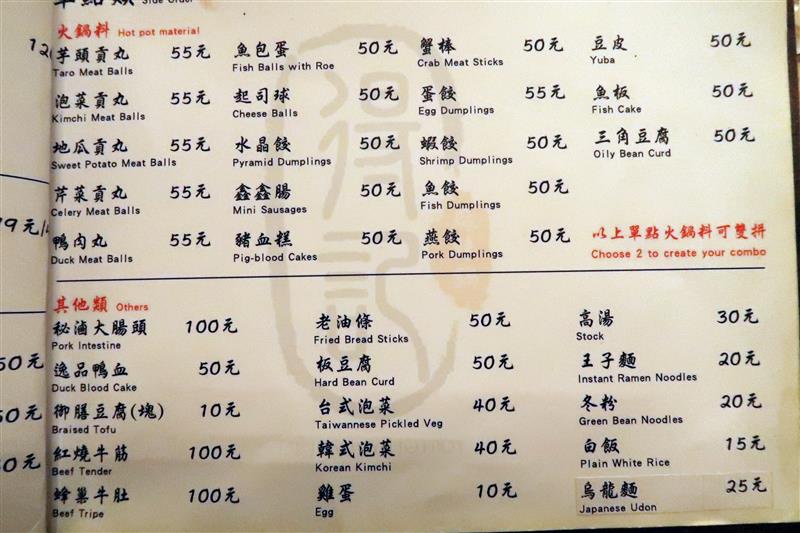 Side Order
火鍋料 Hot pot material
芋頭貢丸 55元 魚包蛋 50元 蟹棒 50元 豆皮 50元
Taro Meat Balls Fish Balls with Roe Crab Meat Sticks Yuba
泡菜貢丸 55元 起司球 50元 蛋餃 55元 魚板 50元
Kimchi Meat Balls Cheese Balls Egg Dumplings Fish Cake
地瓜貢丸 55元 水晶餃 50元 蝦餃 50元 三角豆腐 50元
Sweet Potato Meat Balls Pyramid Dumplings Shrimp Dumplings Oily Bean Curd
芹菜貢丸 55元 鑫鑫腸 50元 魚餃 50元
Celery Meat Balls Mini Sausages Fish Dumplings
鴨肉丸 55元 豬血糕 50元 燕餃 50元 以上單點火鍋料可雙拼
Duck Meat Balls Pig-blood Cakes Pork Dumplings Choose 2 to create your combo
其他類 Others
秘滷大腸頭 100元 老油條 50元 高湯 30元
Pork Intestine Fried Bread Sticks Stock
逸品鴨血 50元 板豆腐 50元 王子麵 20元
Duck Blood Cake Hard Bean Curd Instant Ramen Noodles
御膳豆腐(塊) 10元 台式泡菜 40元 冬粉 20元
Braised Tofu Taiwannese Pickled Veg Green Bean Noodles
紅燒牛筋 100元 韓式泡菜 40元 白飯 15元
Beef Tender Korean Kimchi Plain White Rice
蜂巢牛肚 100元 雞蛋 10元 烏龍麵 25元
Beef Tripe Egg Japanese Udon